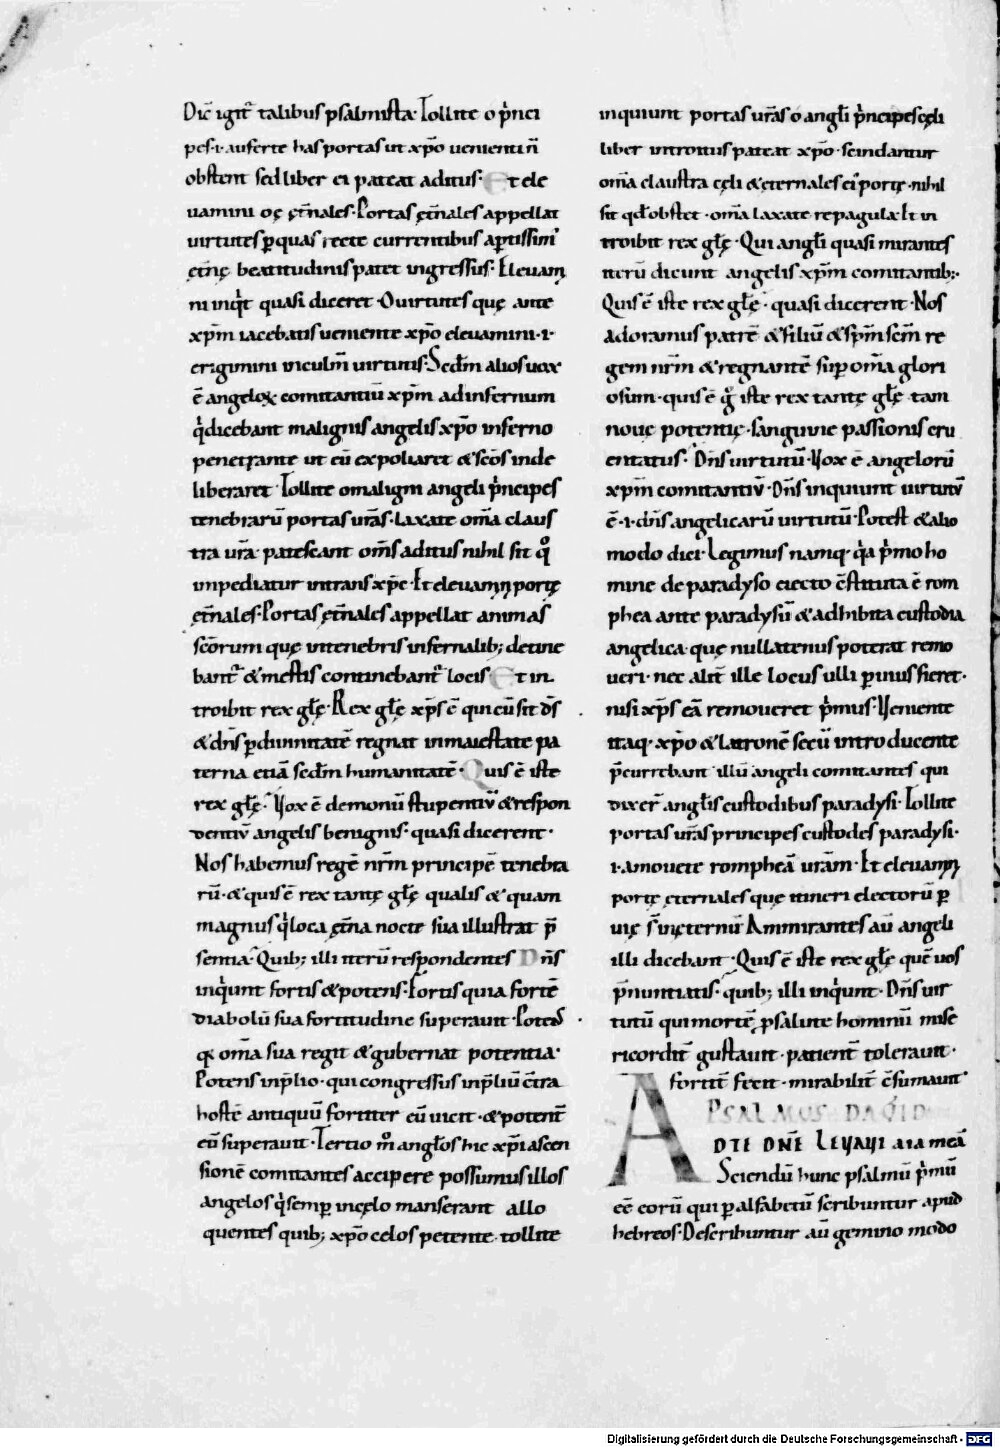 Dic̄ igit᷑ talibus psalmista. Tollite o p̍nci
pes .i. auferte has portas ut xp̄o uenienti n̄
obstent sed liber ei pateat aditus. Et ele
uamini oę ęt̄nales. Portas ęt̄nales appellat
uirtutes ꝑ quas recte currentibus aptissim᷑
ęt̄nę beatitudinis patet ingressus. Eleuam
ni inq̍t quasi diceret. O uirtutes quę ante
xp̄m iacebatis ueniente xp̄o eleuamini .i.
erigimini in culm̄ uirtutis. Scd̄m alios uox
ē angeloꝝ comitantiū xp̄m ad infernum
q̍ dicebant malignis angelis xp̄o inferno
penetrante ut eū expoliaret & sc̄os inde
liberaret. Tollite o maligni angeli p̍ncipes
tenebrarū portas ur̄as. laxate om̄a claus
tra ur̄a. patescant om̄s aditus nihil sit qͦ
impediatur intrans xp̄c. Et eleuamini portę
ęt̄nales. Portas ęt̄nales appellat animas
sc̄orum quę in tenebris infernalib; detine
bant᷑ & mestis continebant᷑ locis. Et in
troibit rex głę. Rex głę xp̄s ē qui cū sit ds̄
& dn̄s ꝑ diuinitatē regnat in maiestate pa
terna etiā scd̄m humanitatē. Quis ē iste
rex głę. Vox ē demonū stupentiū & respon
dentiū angelis benignis. quasi dicerent.
Nos habemus regē nr̄m principē tenebra
rū. & quis ē rex tantę głę qualis & quam
magnus q̍ loca ęt̄na nocte sua illustrat p̄
sentia. Quib; illi iterū respondentes Dn̄s
inq̍unt fortis & potens. Fortis quia fortē
diabolū sua fortitudine superauit. Potens
q̍ om̄a sua regit & gubernat potentia.
Potens in p̄lio. qui congressus in p̄liū c̄tra
hostē antiquū fortiter eū uicit. & potent̄
eū superauit. Tertio m̊ angłos hic xp̄i ascen
sionē comitantes accipere possumus illos
angelos q̍ semꝑ in cęlo manserant allo
quentes quib; xp̄o celos petente. tollite
inquiunt portas ur̄as o angłi p̍ncipes cęli
liber introitus pateat xp̄o. scindantur
om̄a claustra cęli & ęternales ei portę. nihil
sit qd̄ obstet. om̄a laxate repagula. Et in
troibit rex głę. Qui angłi quasi mirantes
iterū dicunt angelis xp̄m comitantib;.
Quis ē iste rex głę. quasi dicerent. Nos
adoramus patrē & filiū & sp̄m sc̄m re
gem nr̄m & regnantē suꝑ om̄a glori
osum. quis ē g̊ iste rex tantę głę tam
nouę potentię. sanguine passionis cru
entatus. Dn̄s uirtutū. Vox ē angelorū
xp̄m comitantiū. Dn̄s inquiunt uirtutū
ē .i. dn̄s angelicarū uirtutū. Potest & alio
modo dici. Legimus namq. q̍a p̍mo ho
mine de paradyso eiecto c̄stituta ē rom
phea ante paradysū & adhibita custodia
angelica. quę nullatenus poterat remo
ueri. nec alit̄ ille locus ulli ꝑuius fieret.
nisi xp̄s eā remoueret p̍mus. Veniente
itaq. xp̄o & latronē secū introducente
p̄currebant illū angeli comitantes qui
dixer̄ angłis custodibus paradysi. Tollite
portas ur̄as principes custodes paradysi.
.i. amouete rompheā ur̄am. Et eleuamini
portę ęternales quę itineri electorū ꝑ
uię s̄ in ęternū. Ammirantes aū angeli
illi dicebant. Quis ē iste rex głę quē uos
p̄nuntiatis. quib; illi inq̍unt. Dn̄s uir
tutū qui mortē p salute hominū mise
ricordit̄ gustauit. patient̄ tolerauit.
fortit̄ fecit. mirabilit̄ c̄sumauit.
PSALMUS DAVID
AD TE DN̄E LEVAVI aīa meā
Sciendū hunc psalmū p̍mū
eē eorū qui ꝑ alfabetū scribuntur apud
hebreos. Describuntur aū gemino modo
Digitalisierung gefördert durch die Deutsche Forschungsgemeinschaft - DFG